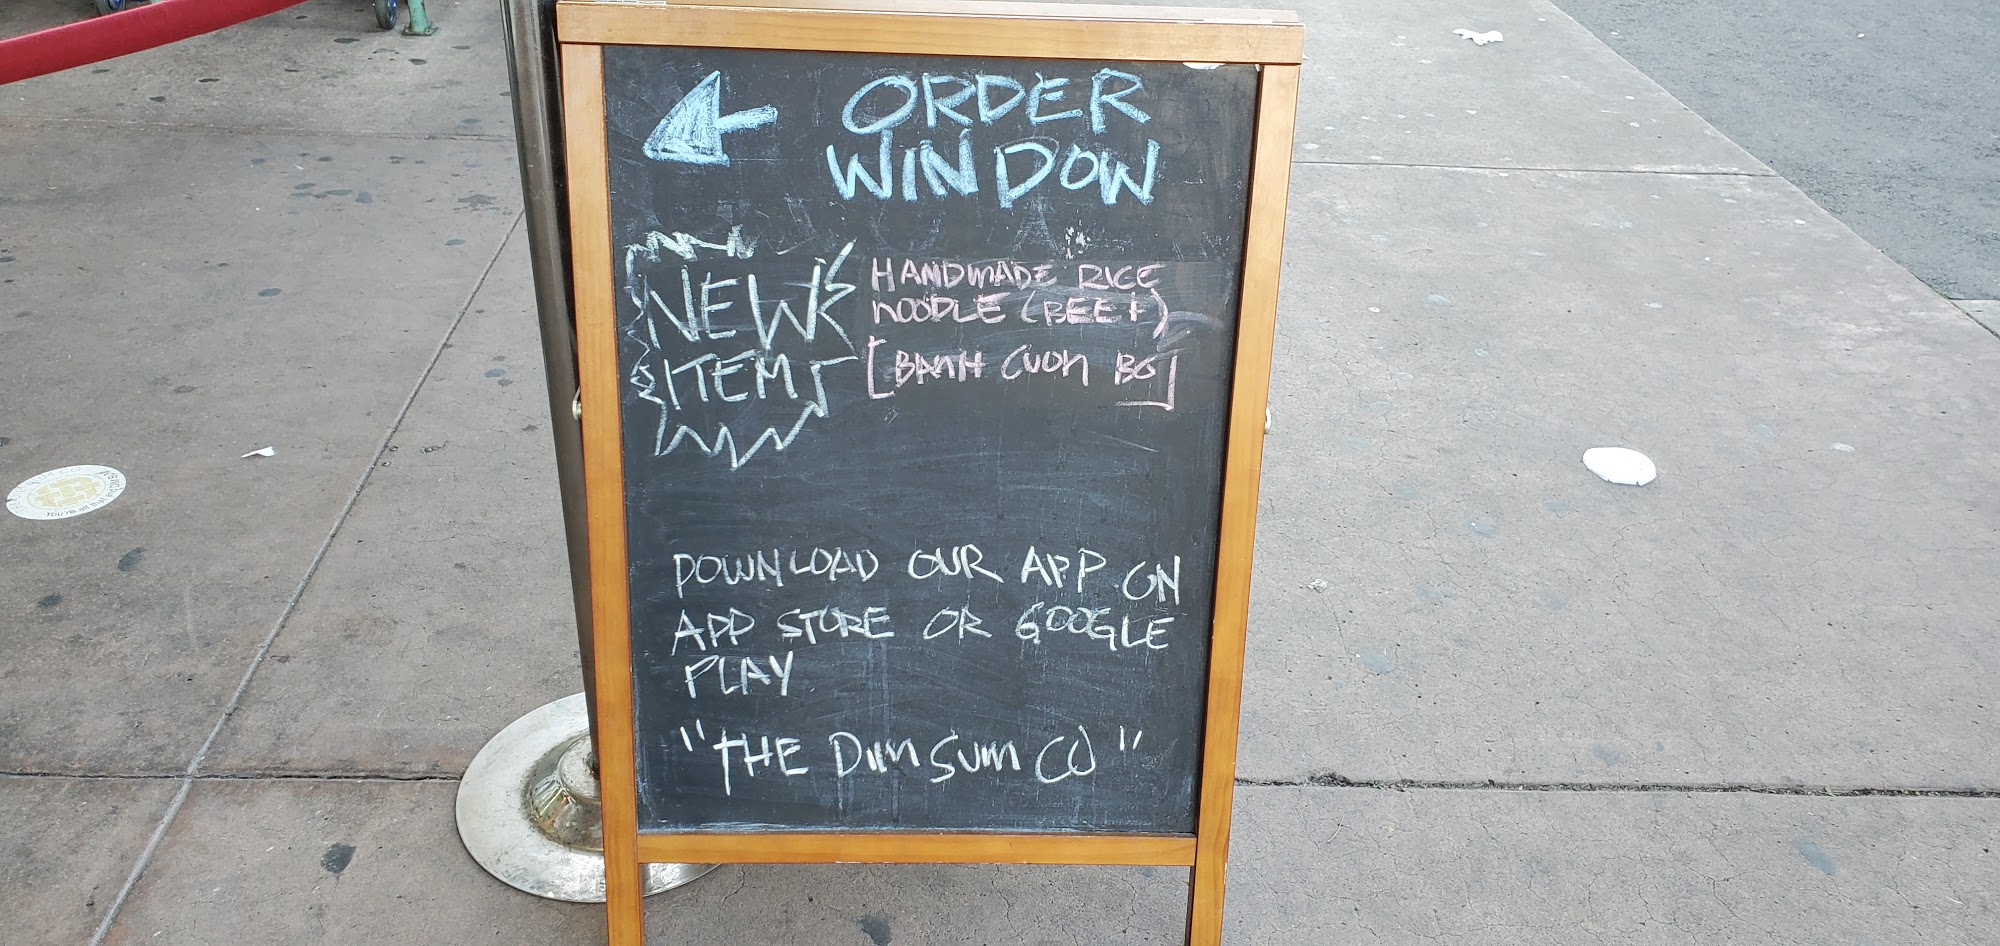 ORDER
WINDOW
NEW
ITEM
HANDMADE RICE
NOODLE (BEEF)
[BANH CUON BO]
DOWNLOAD OUR APP ON
APP STORE OR GOOGLE
PLAY
"THE DIM SUM CO"
You're all that and DIM SUM